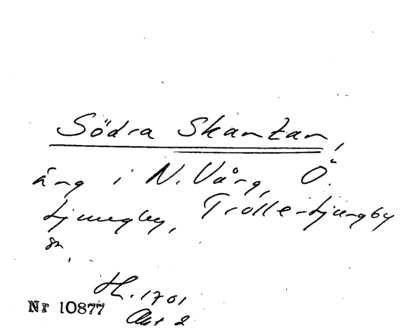 Södra Skantzan,
äng i N. Vång, Ö.
Ljungby, Trolle-Ljungby
sn.
H. 1701
Akt 2
Nr 10877